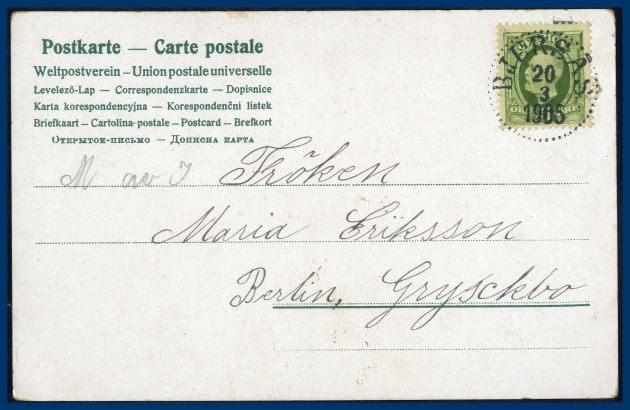 Postkarte — Carte postale
Weltpostverein – Union postale universelle
Levelező-Lap — Correspondenzkarte — Dopisnice
Karta korespondencyjna — Korespondenční listek
Briefkaart – Cartolina-postale – Postcard – Brefkort
Открытое-письмо — Дописна карта
BJURSÅS
20
3
1905
M av I
Fröken
Maria Eriksson
Berlin, Grycksbo